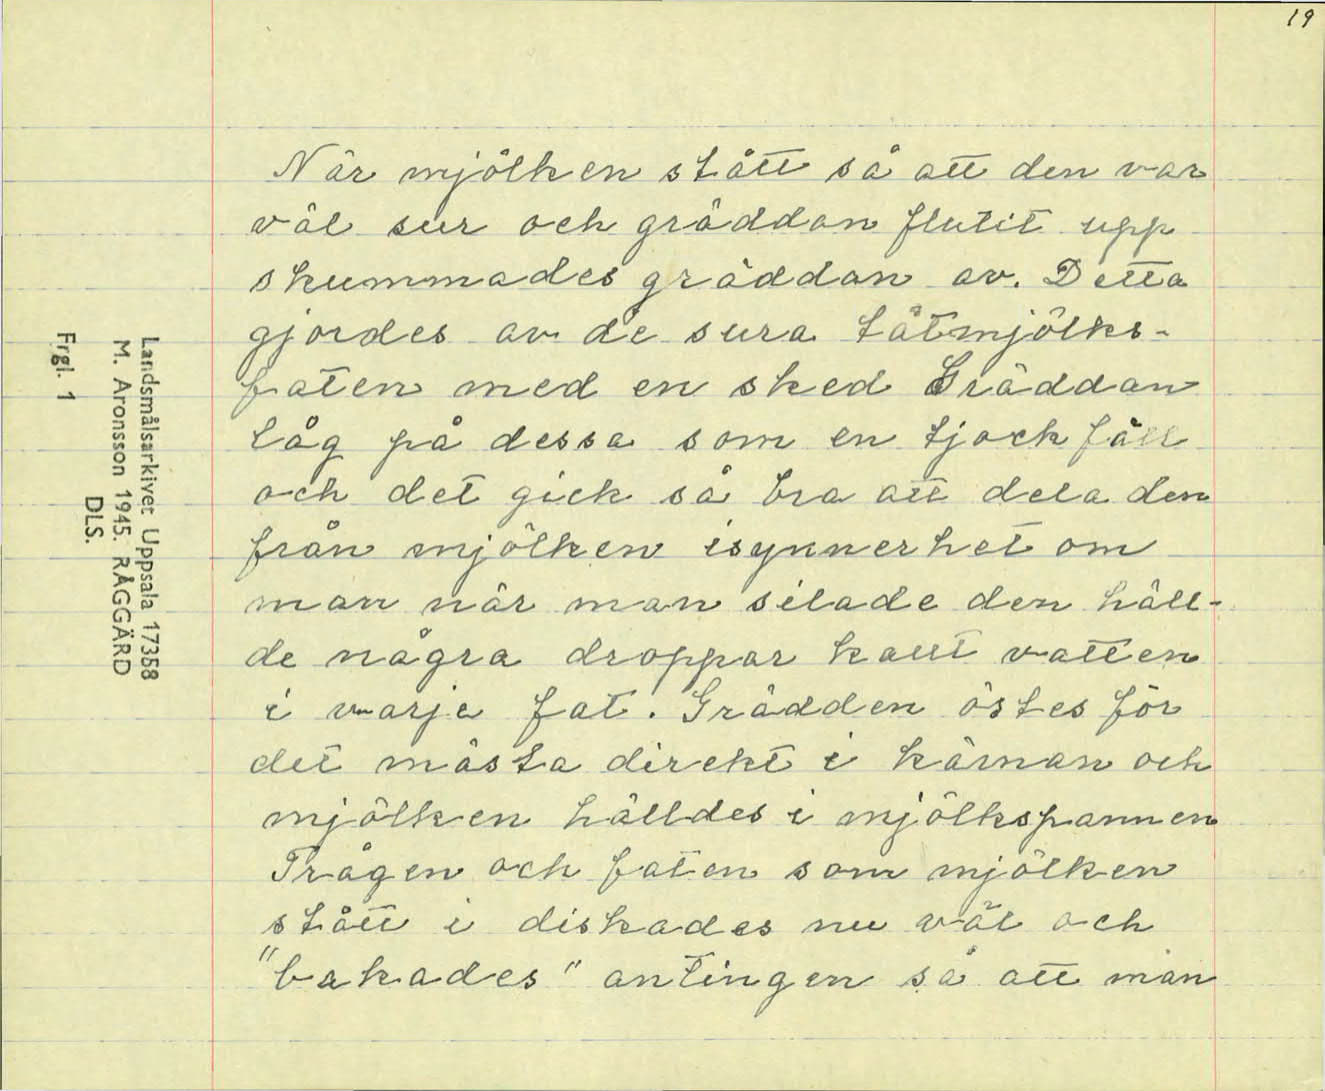 19
När mjölken stått så att den var
väl sur och gräddan flutit upp
skummades gräddan av. Detta
gjordes av de sura tätmjölks-
faten med en sked Gräddan
låg på dessa som en tjock fäll
och det gick så bra att dela den
från mjölken isynnerhet om
man när man silade den häll-
de några droppar kallt vatten
i varje fat. Grädden östes för
det mästa direkt i kärnan och
mjölken hälldes i mjölkspannen
Trågen och faten som mjölken
stått i diskades nu väl och
"bakades" antingen så att man
Landsmålsarkivet Uppsala 17358
M. Aronsson 1945. RÅGGÄRD
DLS.
Frgl. 1